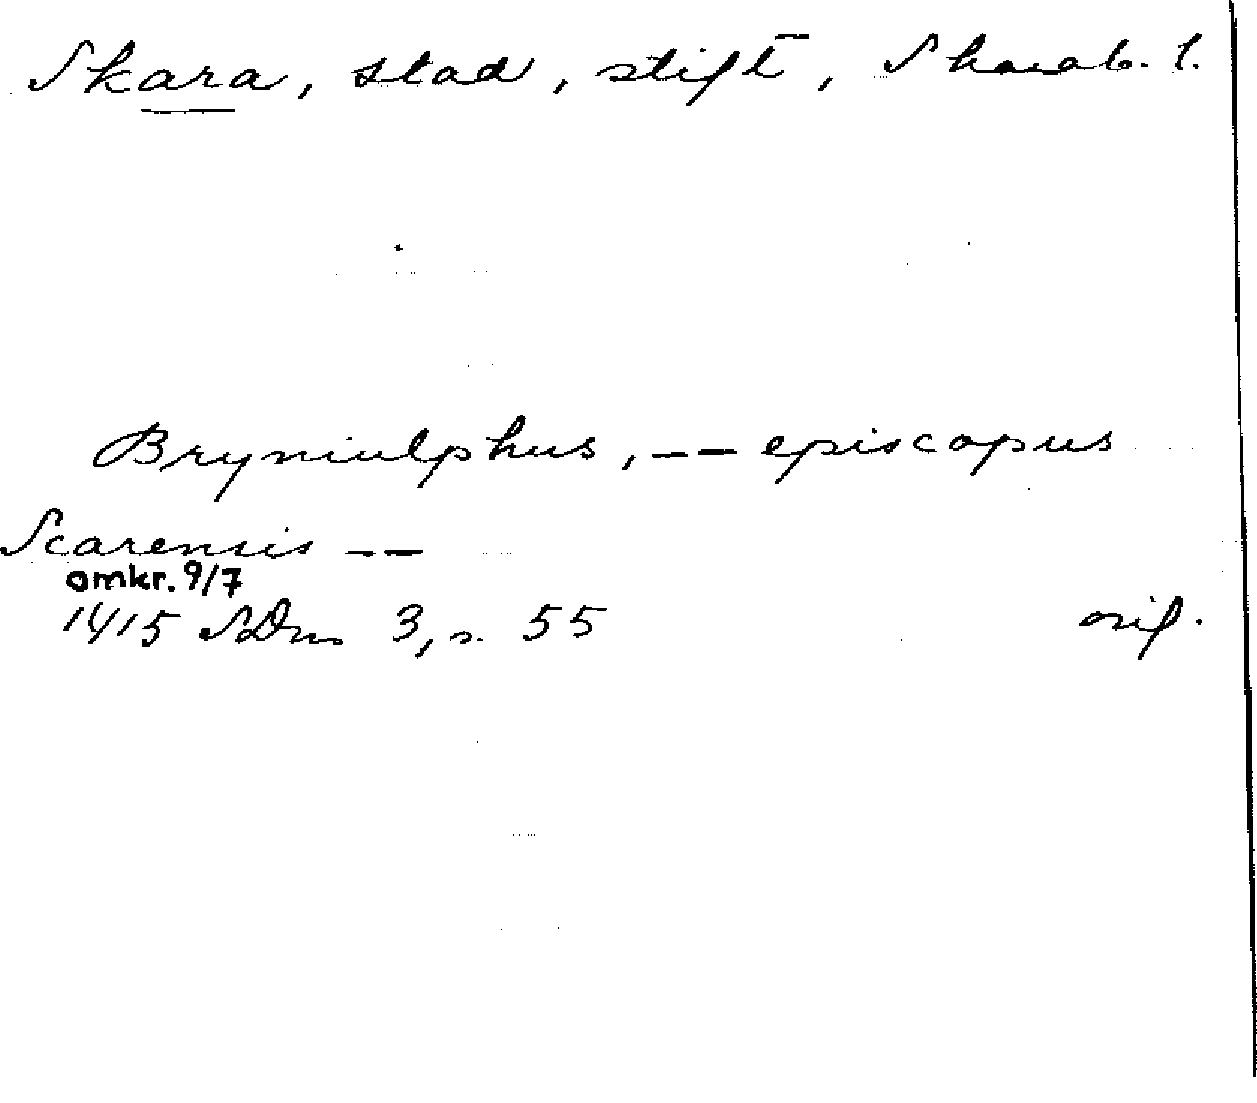 Skara, stad, stift, Skarab. l.
Bryniulphus, -- episcopus
Scarensis --
omkr. 9/7
1415 SDns 3, s. 55 orig.